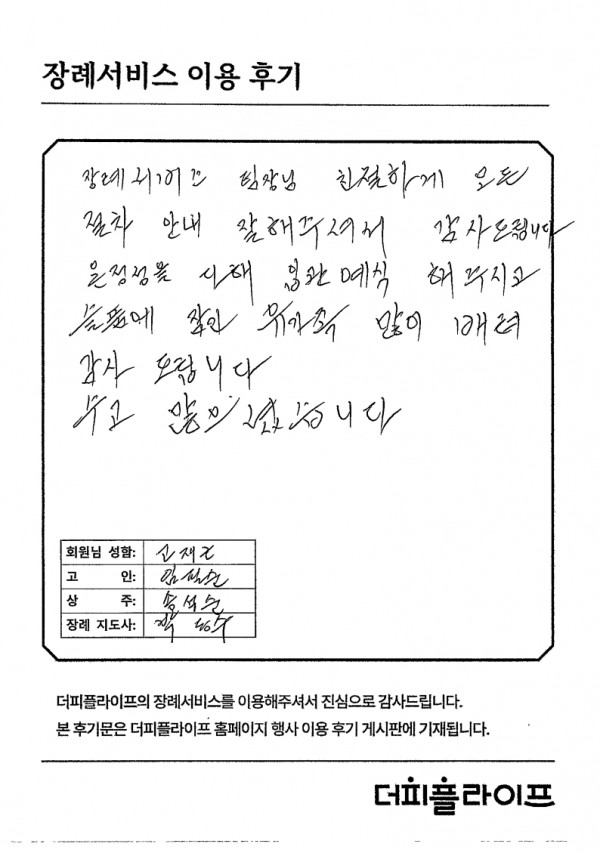 장례서비스 이용 후기
장례 팀장님 친절하게 모든
절차 안내 잘해주셔서 감사드립니다
온정성을 다해 입관 예식 해주시고
슬픔에 잠긴 유가족 많이 배려
감사 드립니다
수고 많으셨습니다
회원님 성함:
고 인:
상 주:
장례 지도사:
더피플라이프의 장례서비스를 이용해주셔서 진심으로 감사드립니다.
본 후기문은 더피플라이프 홈페이지 행사 이용 후기 게시판에 기재됩니다.
더피플라이프